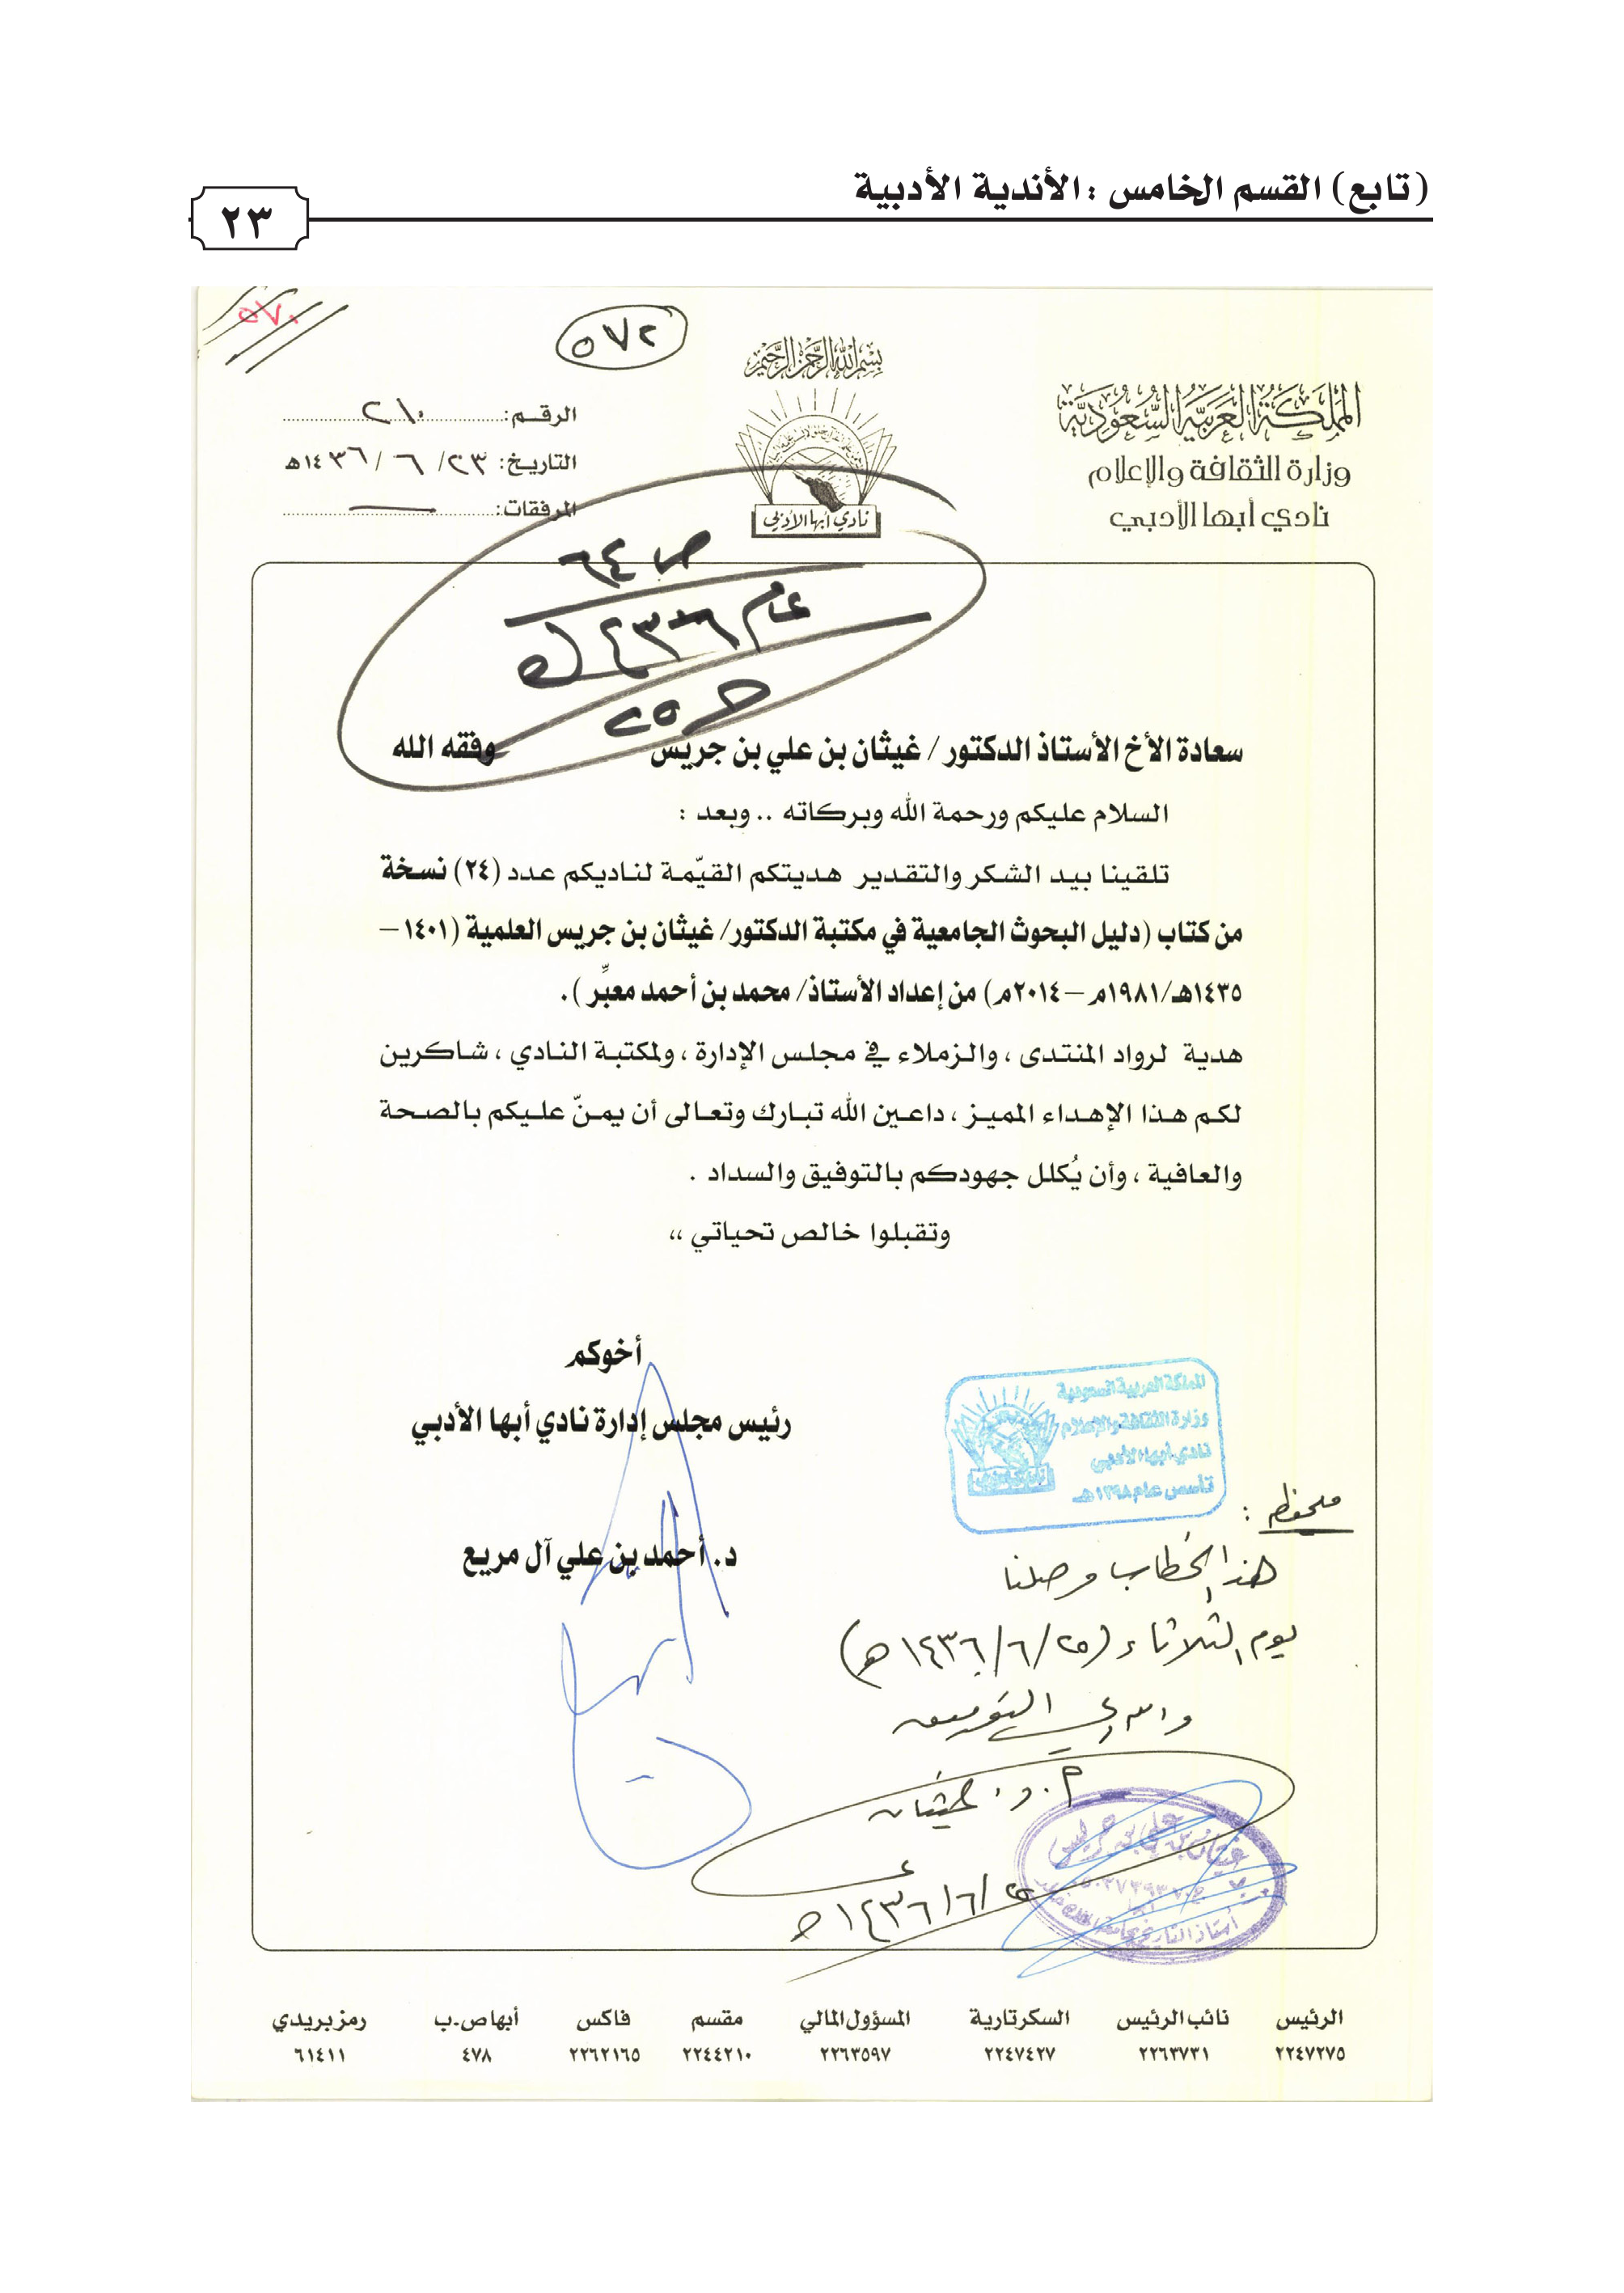 (تابع) القسم الخامس : الأندية الأدبية
٢٣
٥٧٠
٥٧٢
بسم الله الرحمن الرحيم
المملكة العربية السعودية
وزارة الثقافة والإعلام
نادي أبها الأدبي
نادي أبها الأدبي
الرقم: ٢١٠
التاريخ: ٢٣/ ٦ / ١٤٣٦هـ
المرفقات:
ص ٦٤
عام ١٤٣٦هـ
ح ٢٥
سعادة الأخ الأستاذ الدكتور / غيثان بن علي بن جريس وفقه الله
السلام عليكم ورحمة الله وبركاته .. وبعد :
تلقينا بيد الشكر والتقدير هديتكم القيّمة لناديكم عدد (٢٤) نسخة
من كتاب (دليل البحوث الجامعية في مكتبة الدكتور/ غيثان بن جريس العلمية (١٤٠١ –
١٤٣٥هـ/١٩٨١م – ٢٠١٤م) من إعداد الأستاذ/ محمد بن أحمد معبِّر ).
هدية لرواد المنتدى ، والزملاء في مجلس الإدارة ، ولمكتبة النادي ، شاكرين
لكم هذا الإهداء المميز ، داعين الله تبارك وتعالى أن يمنّ عليكم بالصحة
والعافية ، وأن يُكلل جهودكم بالتوفيق والسداد .
وتقبلوا خالص تحياتي ،،
أخوكم
رئيس مجلس إدارة نادي أبها الأدبي
د. أحمد بن علي آل مريع
المملكة العربية السعودية
وزارة الثقافة والإعلام
نادي أبها الأدبي
تأسس عام ١٣٩٨هـ
ملحوظة :
هذا الخطاب وصلنا
يوم الثلاثاء (٢٥/٦/١٤٣٦هـ)
والله ولي التوفيق
أ.د. غيثان
٢٥/٦/١٤٣٦هـ
غيثان بن علي بن جريس
الرئيس نائب الرئيس السكرتارية المسؤول المالي مقسم فاكس أبها ص.ب رمز بريدي
٢٢٤٧٢٧٥ ٢٢٦٣٧٣١ ٢٢٤٧٤٢٧ ٢٢٦٣٥٩٧ ٢٢٤٤٢١٠ ٢٢٦٢١٦٥ ٤٧٨ ٦١٤١١